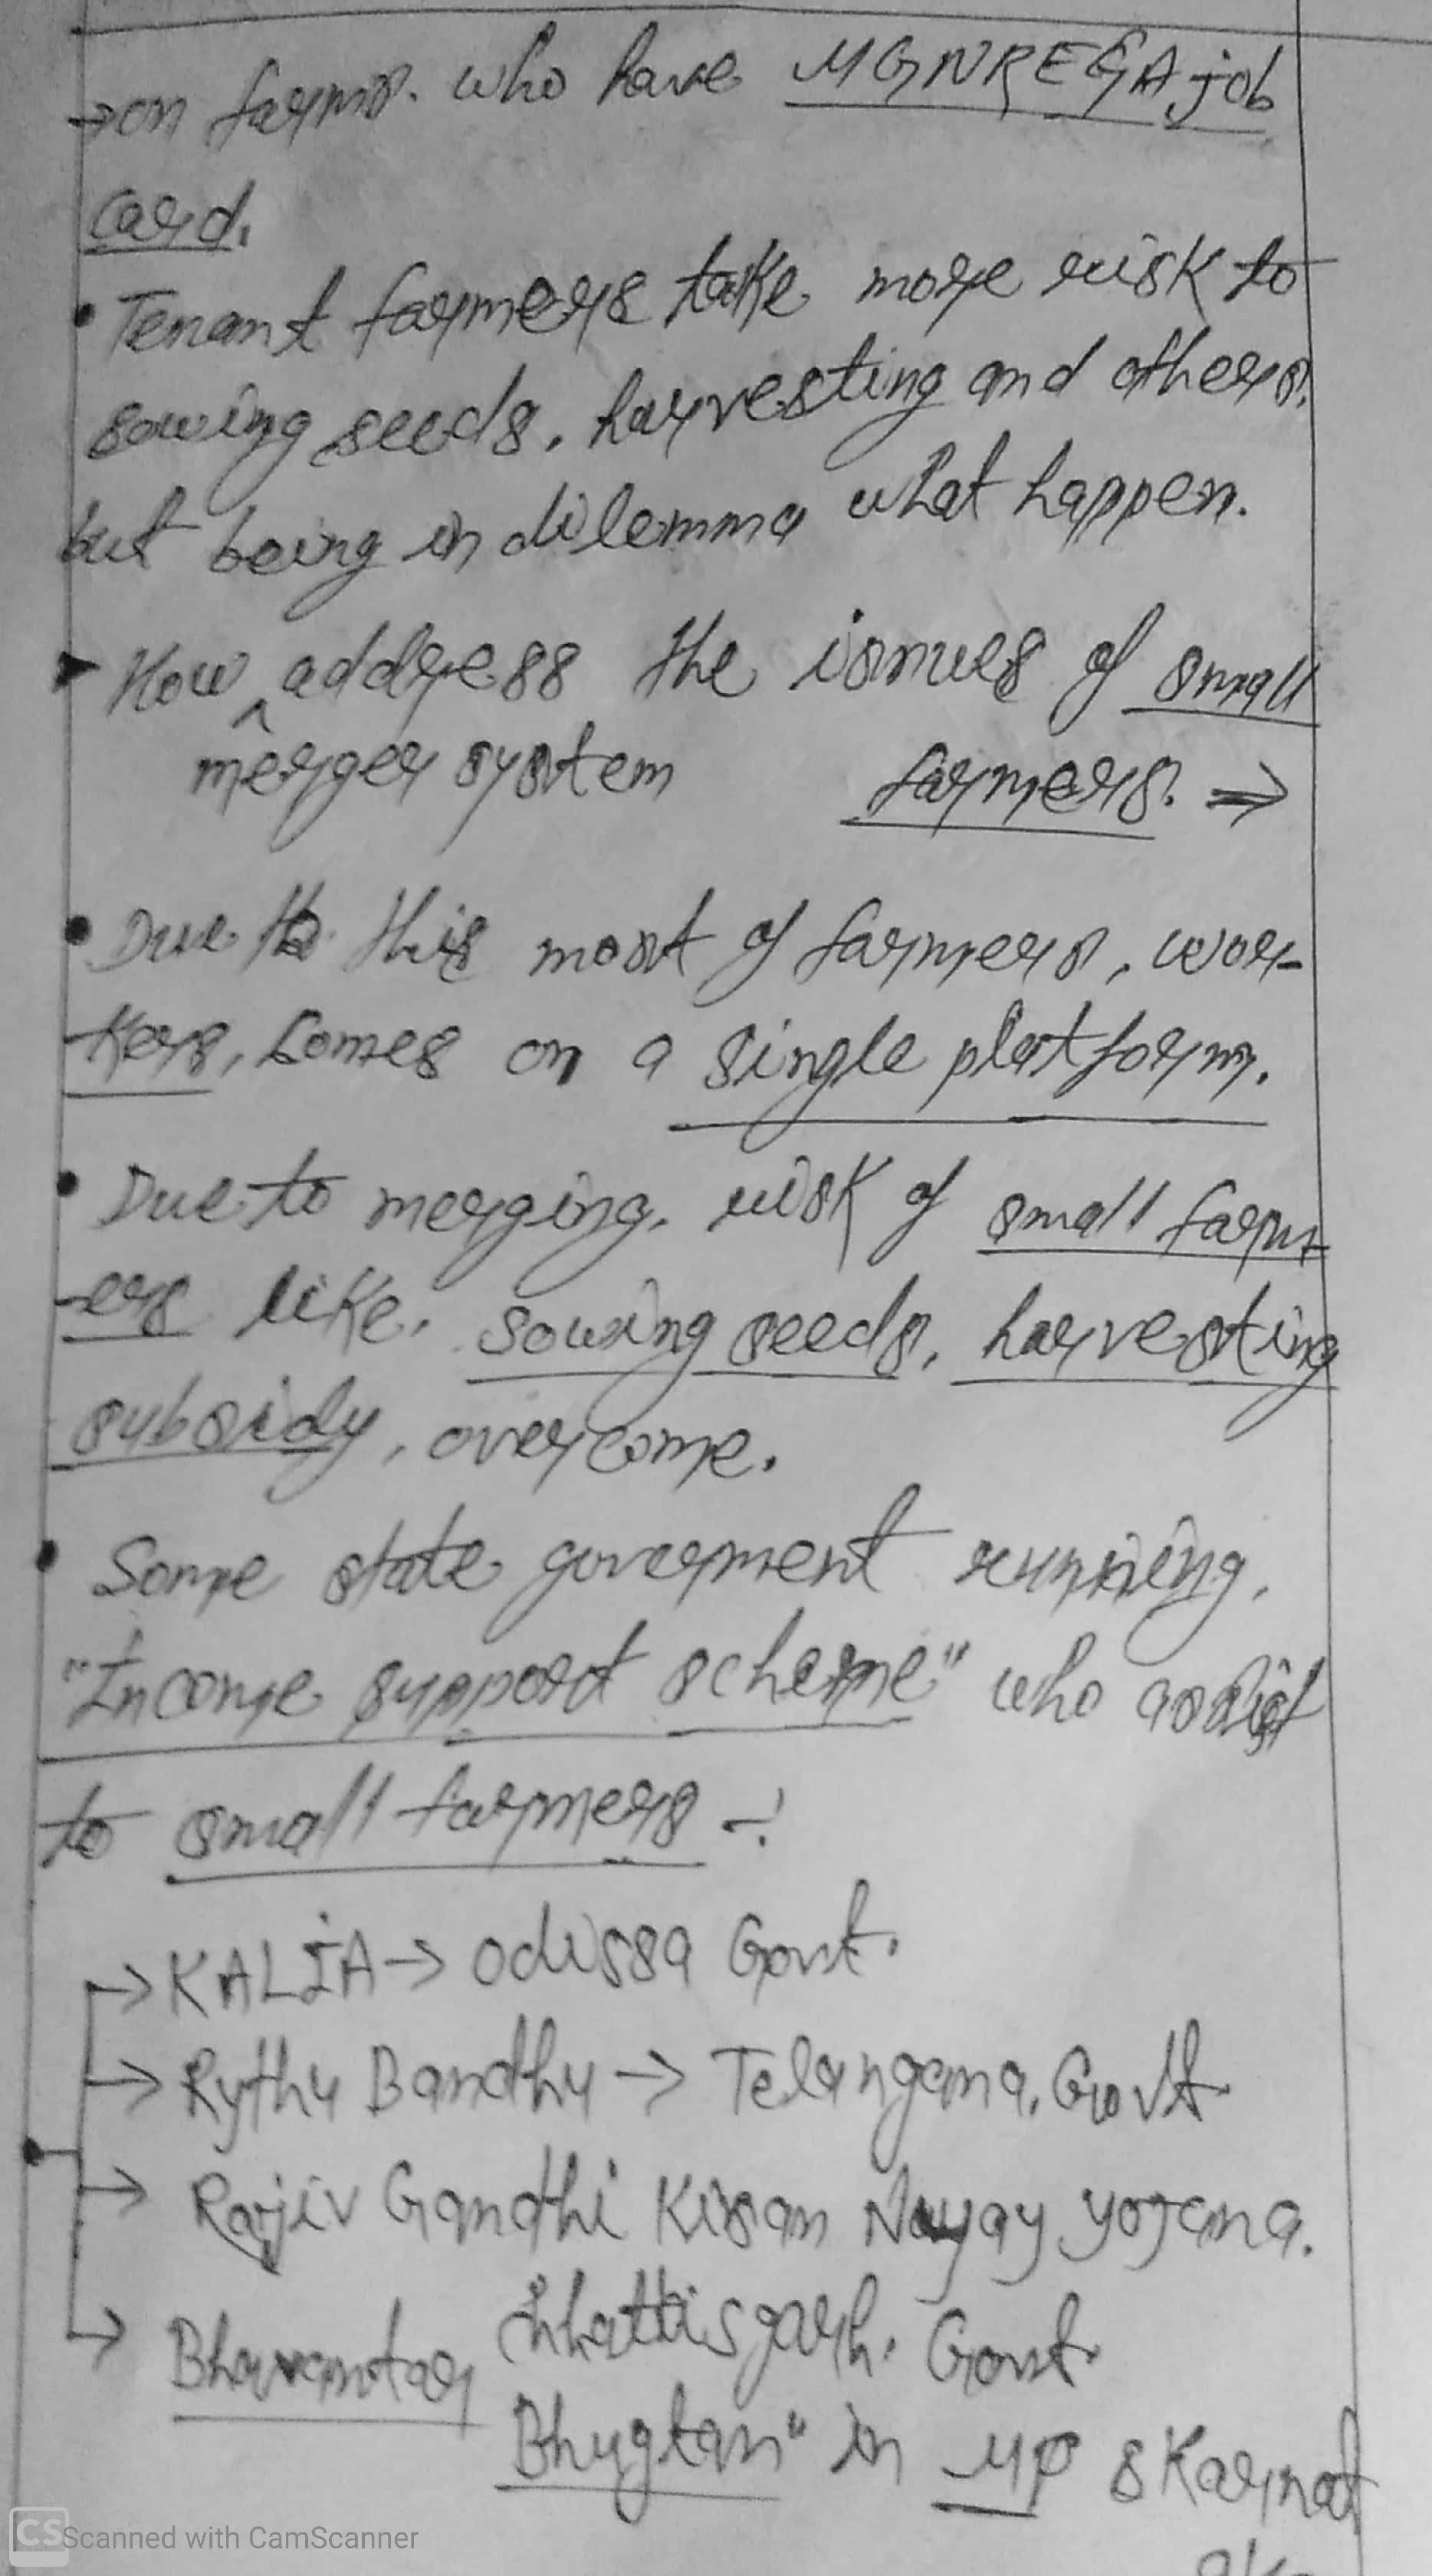 →on farms. who have MGNREGA job
card.
• Tenant farmers take more risk to
sowing seeds, harvesting and others,
but being in dilemma what happen.
► How ^ address the issues of small
merger system farmers. ⇒
• Due to this most of farmers, wor-
-kers, comes on a single platform.
• Due to merging, risk of small farm
-ers like, sowing seeds, harvesting
subsidy, overcome.
• Some state goverment running,
"Income support scheme" who assist
to small farmers -:
→ KALIA → Odissa Govt.
→ Rythu Bandhu → Telangana. Govt
→ Rajiv Gandhi Kisan Nayay yojana.
Chhattisgarh. Govt
→ Bhavantar
Bhugtan" in MP & Karnat
CS Scanned with CamScanner